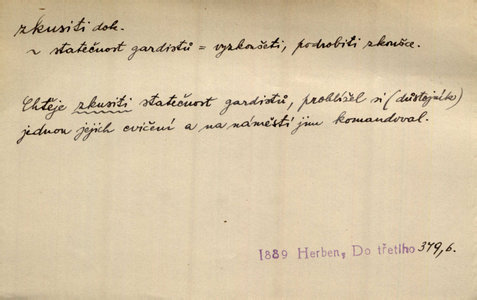 zkusiti dok.
~ statečnost gardistů = vyzkoušeti, podrobiti zkoušce.
Chtěje zkusiti statečnost gardistů, prohlížel si (důstojník)
jednou jejich cvičení a na náměstí jim komandoval.
1889 Herben, Do třetího 379,6.